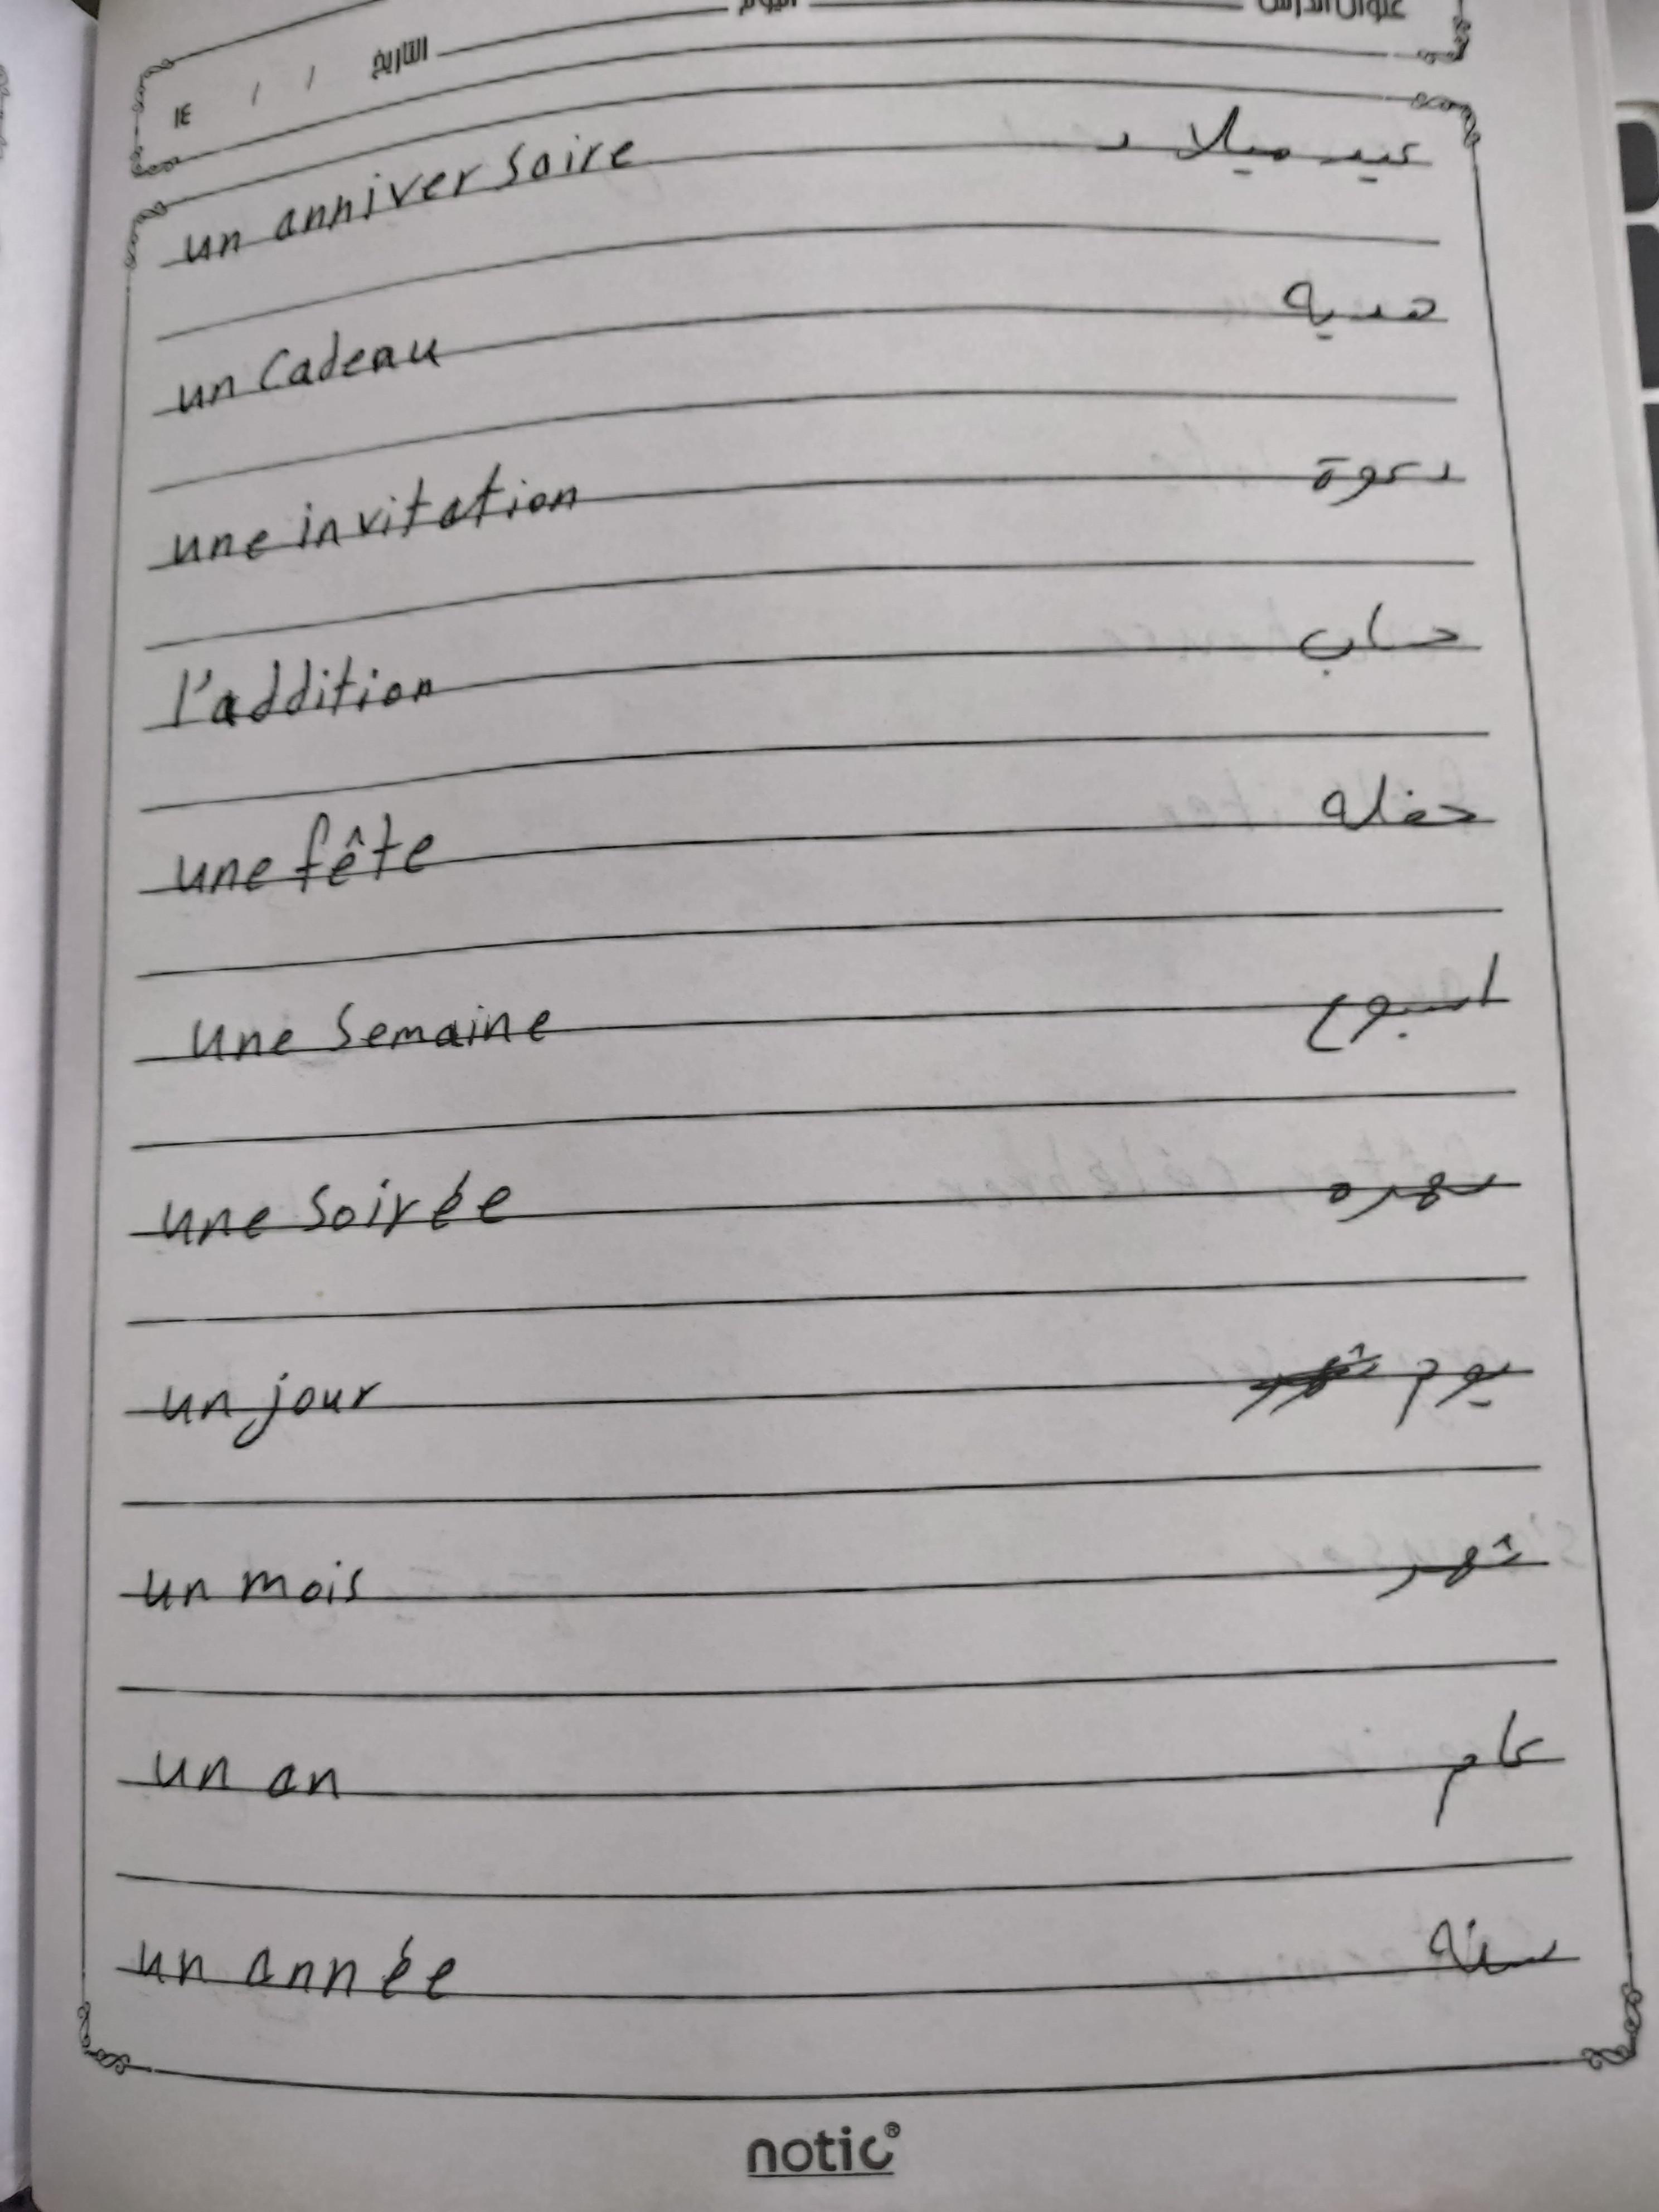 عنوان الدرس اليوم التاريخ / / ١٤
un anniversaire عيد ميلاد
un cadeau هديه
une invitation دعوة
l'addition حساب
une fête حفله
une semaine اسبوع
une soirée سهره
un jour يوم
un mois شهر
un an عام
un année سنه
notic®